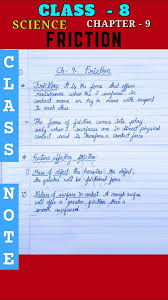 CLASS - 8
SCIENCE CHAPTER - 9
FRICTION
CLASS NOTE
Ch-9 Friction
Friction: It is the force that offers
resistance when the 2 surfaces in
contact move or try to move with respect
to each other
The force of friction comes into play
only when 2 surfaces are in direct physical
contact and is therefore a contact force
Factors affecting friction
Mass of the object: The heavier the object, the
greater will be frictional force
Nature of surface in contact: A rough surface
will offer a greater friction than a
smooth surface